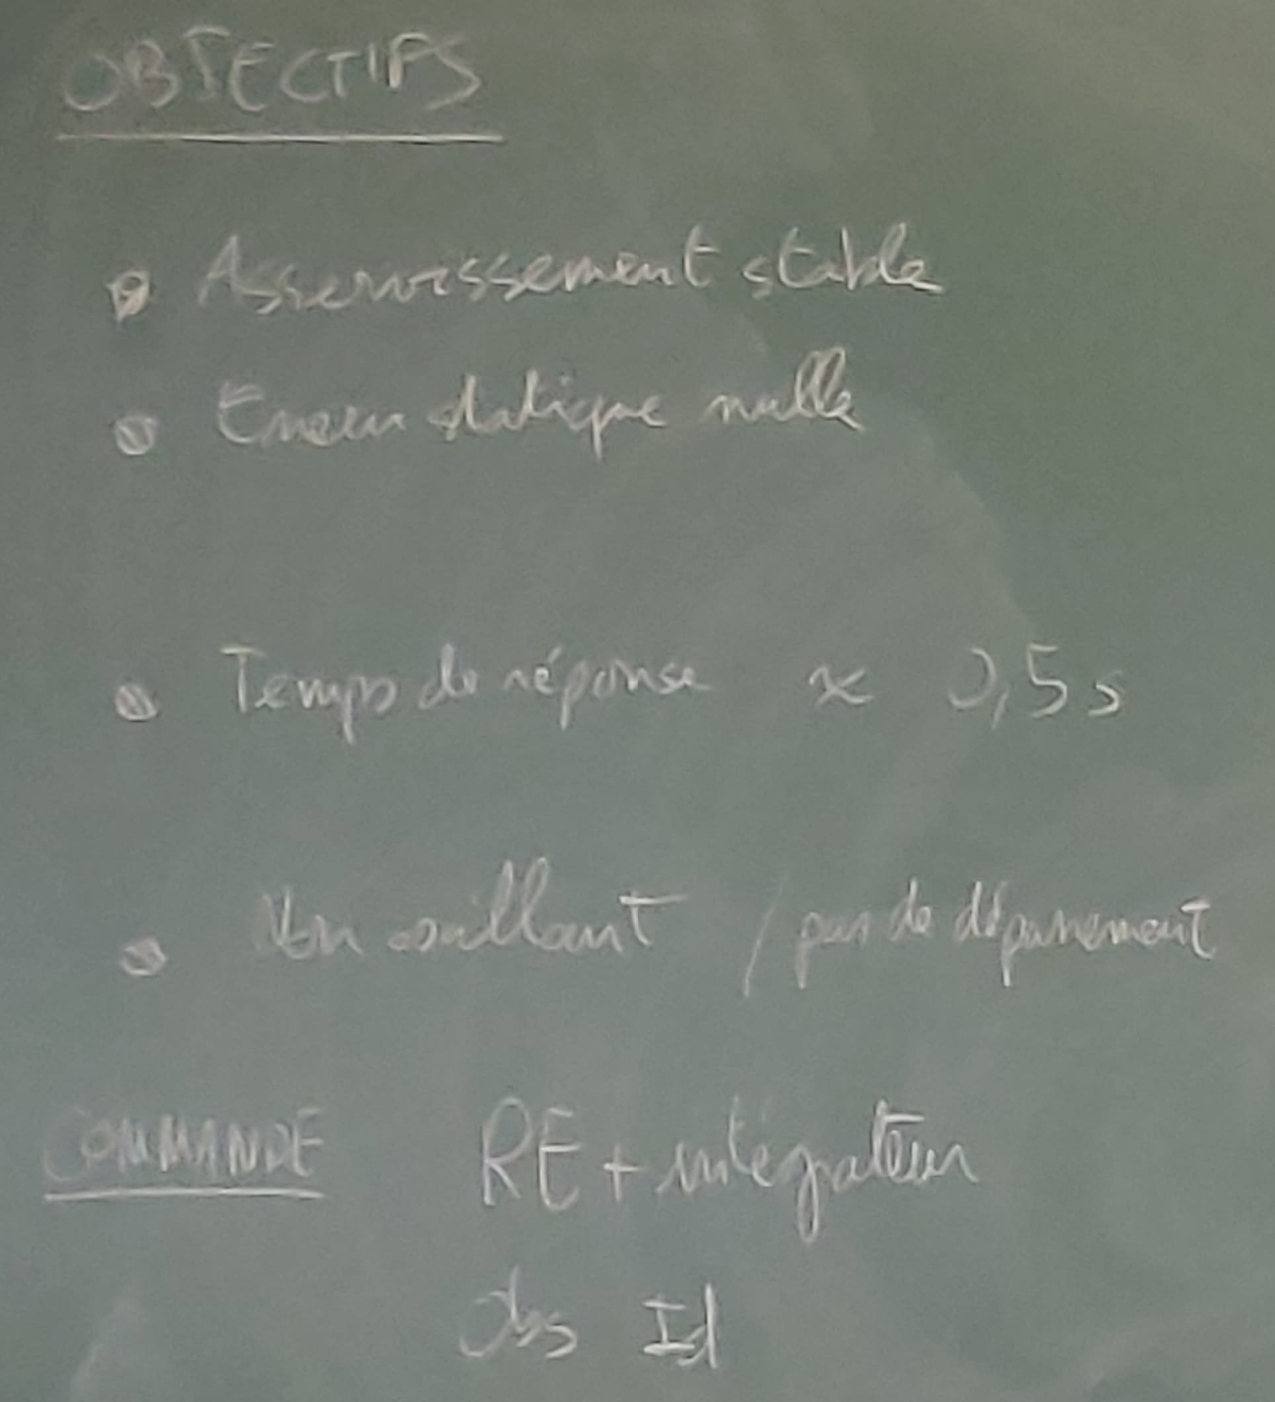 OBJECTIFS
• Asservissement stable
• Erreur statique nulle
• Temps de réponse ≈ 0,5 s
• Non oscillant / pas de dépassement
COMMANDE RE + intégrateur
Obs Id